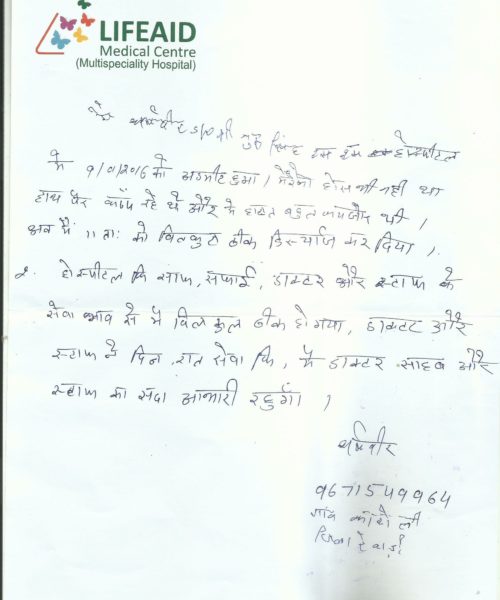 LIFEAID
Medical Centre
(Multispeciality Hospital)
मैं धर्मवीर S/O श्री सिंह इस होस्पीटल
मे 9/01/2016 को अडमीट हुआ। मेरेको होस भी नही था
हाथ पैर कांप रहे थे और मे हालत बहुत कमजोर थी।
अब मैं 11 ता: को बिलकुल ठीक डिस्चार्ज कर दिया।
2. होस्पीटल कि साफ, सफाई, डाक्टर और स्टाफ के
सेवा भाव से मैं बिलकुल ठीक हो गया, डाक्टर और
स्टाफ ने दिन, रात सेवा कि, मैं डाक्टर साहब और
स्टाफ का सदा आभारी रहुगाँ।
धर्मवीर
9671549964
गांव ली
जिला रेवाड़ी